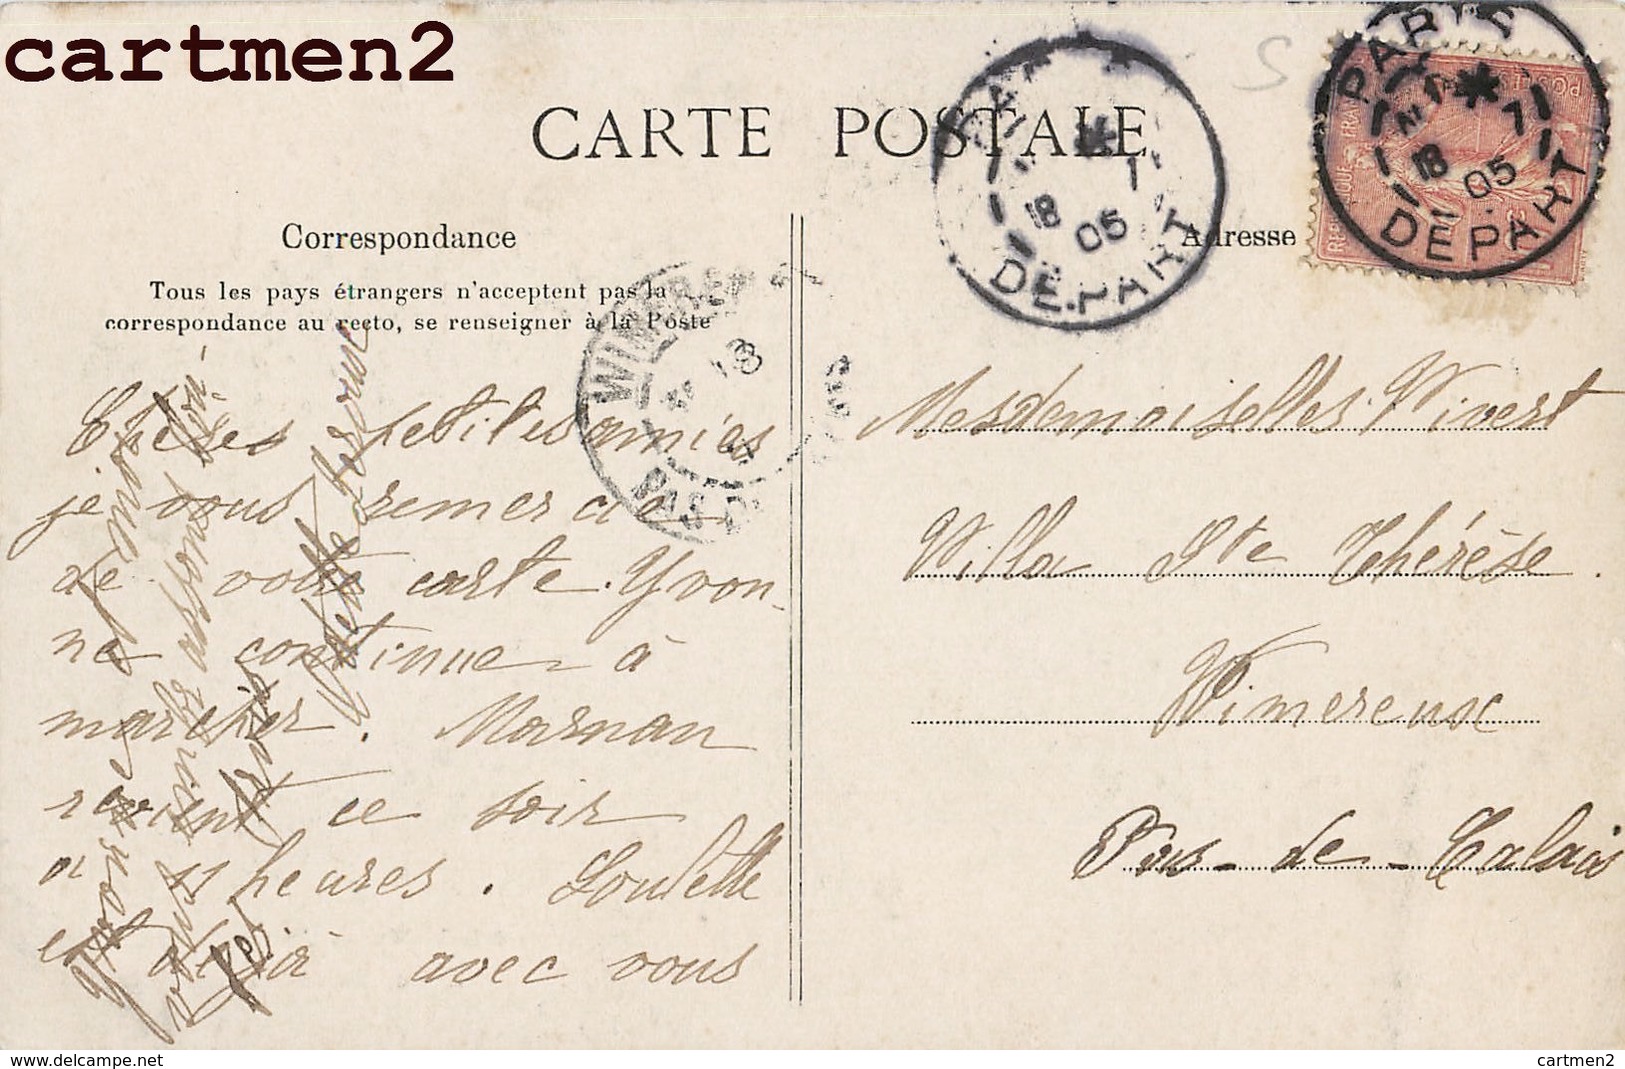 cartmen2
CARTE POSTALE
Correspondance
Tous les pays étrangers n'acceptent pas la
correspondance au recto, se renseigner à la Poste
Chères petites amies
je vous remercie
de votre carte. Yvon-
ne continue à
marcher. Maman
revient ce soir
à 11 heures. Loulette
est déjà avec vous
Yvonne et moi
vous embrassons
Adresse
PARIS
18 7
05
DÉPART
PARIS
18 7
05
DEPART
WIMEREUX
18
PAS DE
Mesdemoiselles Vivert
Villa Ste Thérèse.
Wimereux
Pas-de-Calais
www.delcampe.net
cartmen2